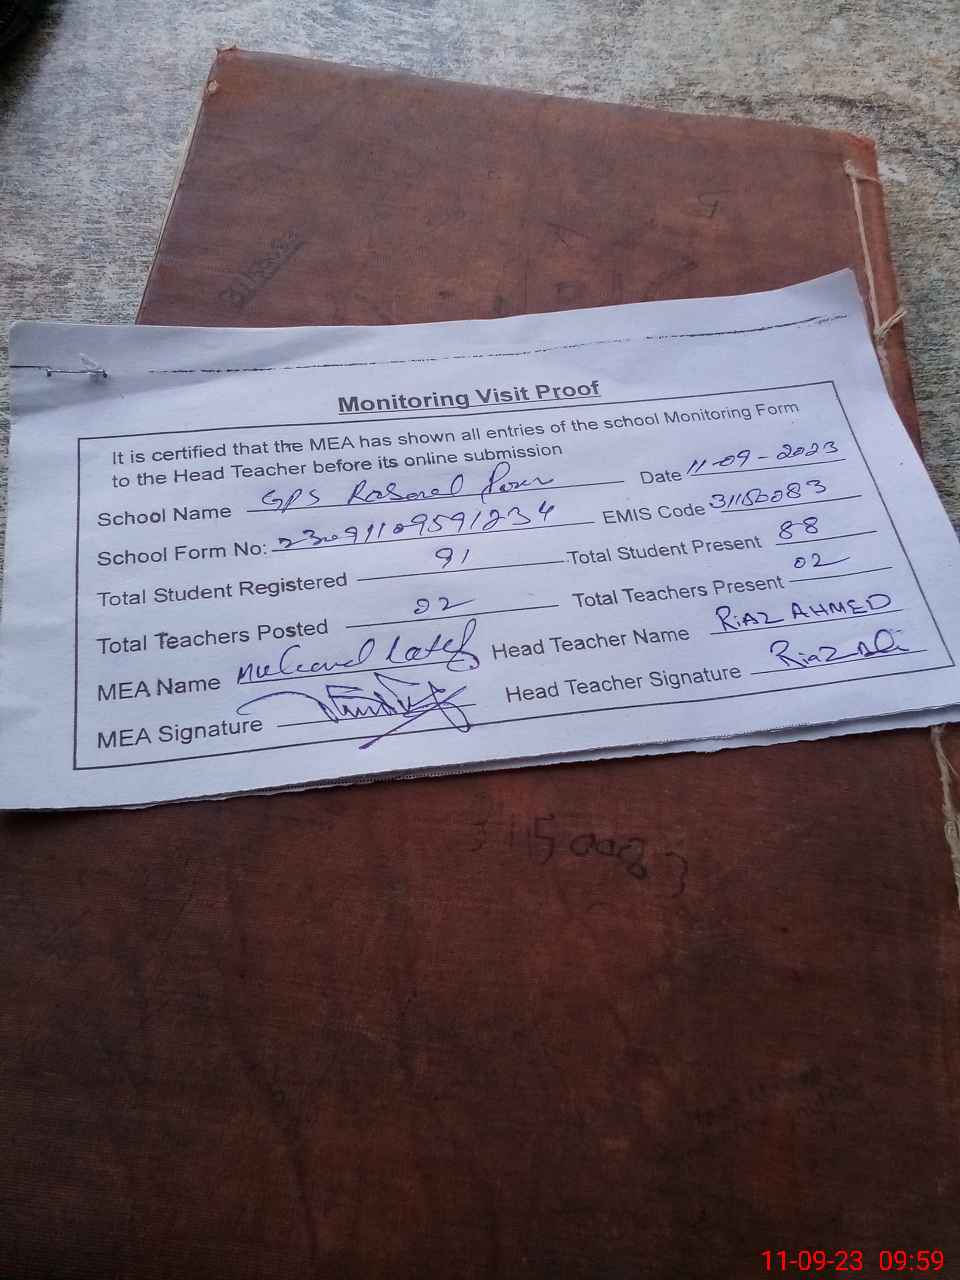 31150083
Monitoring Visit Proof
It is certified that the MEA has shown all entries of the school Monitoring Form
to the Head Teacher before its online submission
School Name GPS Rasool Date 11-09-2023
School Form No: EMIS Code 31150083
Total Student Registered 91 Total Student Present 88
Total Teachers Posted 02 Total Teachers Present 02
MEA Name Latif Head Teacher Name RiAZ AHMED
MEA Signature Head Teacher Signature Riaz
31150083
11-09-23 09:59